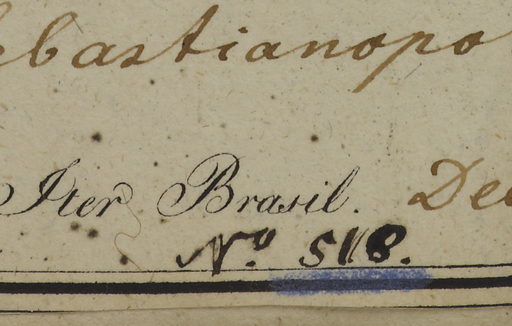 ebastianopo
Iter Brasil. Dec
No. 518.